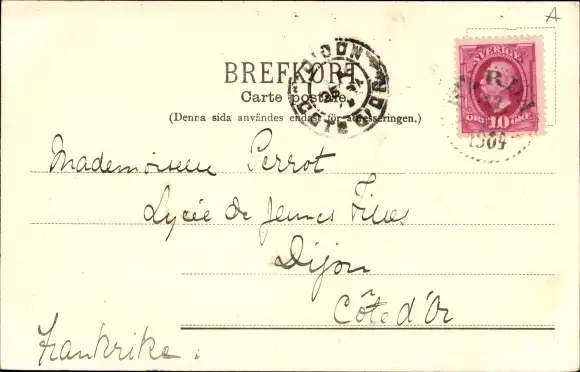 A
BREFKORT.
Carte postale.
(Denna sida användes endast för adresseringen.)
SVERIGE
10
ÖRE
ÖRE
1904
DIJON
Mademoiselle Perrot
Lycée de Jeunes Filles
Dijon
Côte d'Or
Frankrike.